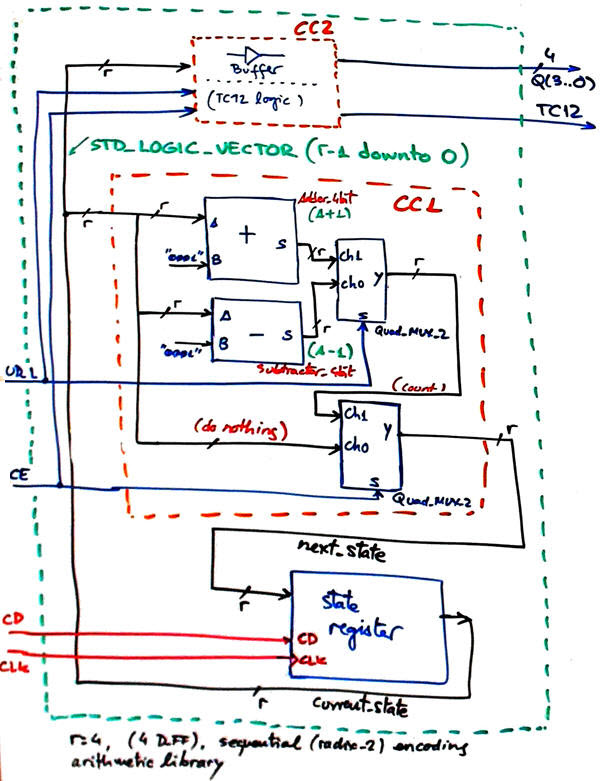 CC2
r
Buffer
(TC12 logic)
4
Q(3..0)
TC12
STD_LOGIC_VECTOR (r-1 downto 0)
CC1
Adder_4bit
(A+1)
r
r
A
+
S
"0001"
B
r
ch1
y
r
ch0
r
A
-
S
r
S
Quad_MUX_2
"0001"
B
(A-1)
Subtractor_4bit
UD_L
(count)
(do nothing)
ch1
y
r
ch0
CE
S
Quad_MUX_2
next_state
r
state
register
CD
CD
CLK
CLK
r
current_state
r=4, (4 DFF), sequential (radix-2) encoding
arithmetic library